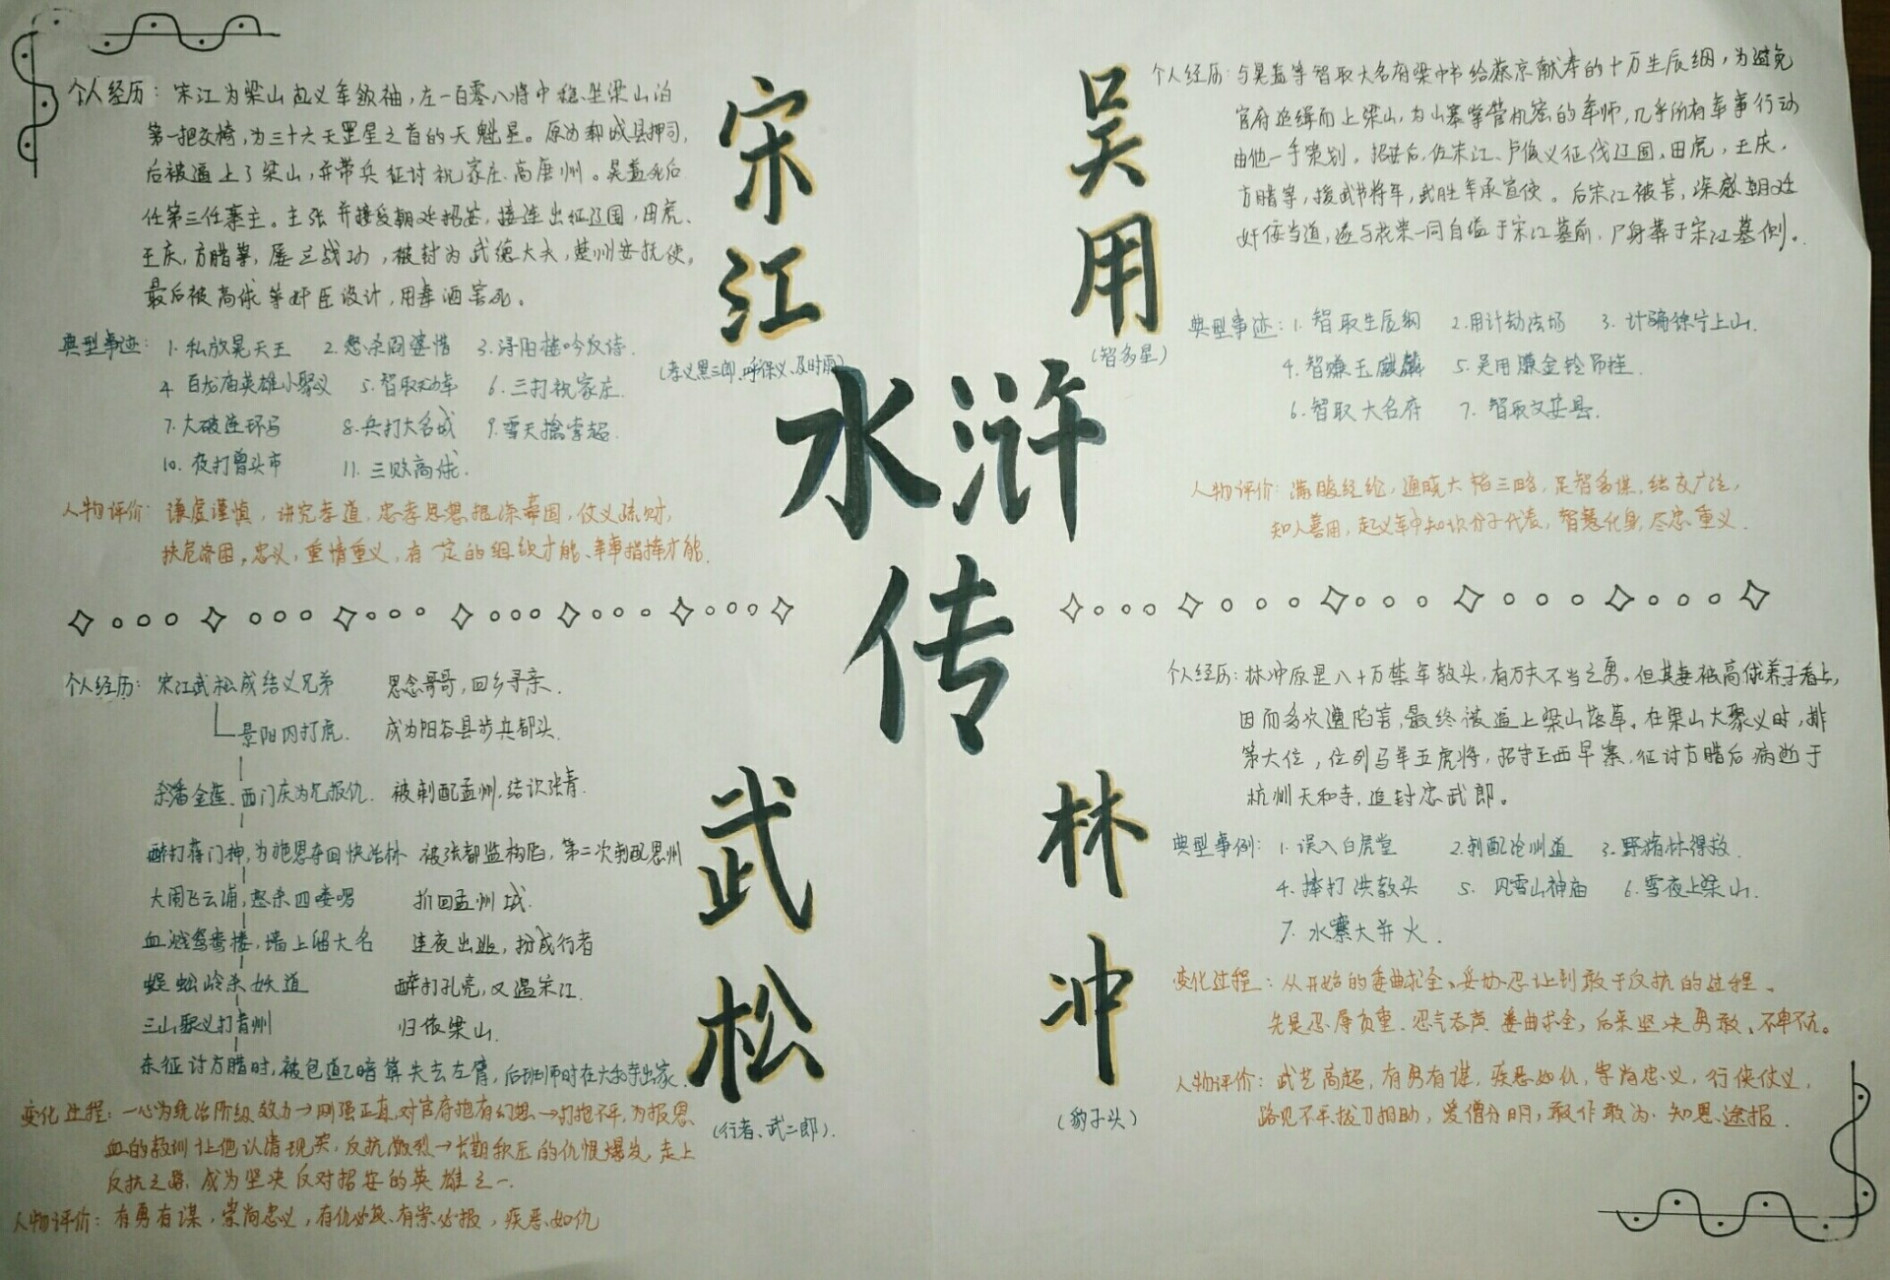 水浒传
宋江
(孝义黑三郎、呼保义、及时雨)
个人经历：宋江为梁山起义军领袖，在一百零八将中稳坐梁山泊
第一把交椅，为三十六天罡星之首的天魁星。原为郓城县押司，
后被逼上了梁山，并带兵征讨祝家庄、高唐州。晁盖死后
任第三任寨主。主张并接受朝廷招安，接连出征辽国，田虎、
王庆，方腊等，屡立战功，被封为武德大夫，楚州安抚使，
最后被高俅等奸臣设计，用毒酒害死。
典型事迹：1. 私放晁天王 2. 怒杀阎婆惜 3. 浔阳楼吟反诗.
4. 白龙庙英雄小聚义 5. 智取无为军 6. 三打祝家庄.
7. 大破连环马 8. 兵打大名城 9. 雪天擒索超.
10. 夜打曾头市 11. 三败高俅.
人物评价：谦虚谨慎，讲究孝道，忠孝思想根深蒂固，仗义疏财，
扶危济困，忠义，重情重义，有一定的组织才能、军事指挥才能.
吴用
(智多星)
个人经历：与晁盖等智取大名府梁中书给蔡京献寿的十万生辰纲，为避免
官府追缉而上梁山，为山寨掌管机密的军师，几乎所有军事行动
由他一手策划。招安后，佐宋江、卢俊义征伐辽国，田虎，王庆，
方腊等，授武节将军，武胜军承宣使。后宋江被害，深感朝廷
奸佞当道，遂与花荣一同自缢于宋江墓前，尸身葬于宋江墓侧。
典型事迹：1. 智取生辰纲 2. 用计劫法场 3. 计骗徐宁上山.
4. 智赚玉麒麟 5. 吴用赚金铃吊挂.
6. 智取大名府 7. 智取文安县.
人物评价：满腹经纶，通晓六韬三略，足智多谋，结交广泛，
知人善用，起义军中知识分子代表，智慧化身，尽忠重义.
武松
(行者、武二郎).
个人经历：宋江武松成结义兄弟 思念哥哥，回乡寻亲.
景阳冈打虎. 成为阳谷县步兵都头.
杀潘金莲、西门庆为兄报仇. 被刺配孟州，结识张青.
醉打蒋门神，为施恩夺回快活林 被张都监构陷，第二次刺配恩州
大闹飞云浦，怒杀四喽啰 折回孟州城.
血溅鸳鸯楼，墙上留大名 连夜出逃，扮成行者
蜈蚣岭杀妖道 醉打孔亮，又遇宋江.
三山聚义打青州 归依梁山.
东征讨方腊时，被包道乙暗算失去左臂，后班师时在六和寺出家.
变化过程：一心为统治阶级效力→刚强正直，对官府抱有幻想→打抱不平，为报恩
血的教训让他认清现实，反抗激烈→长期积压的仇恨爆发，走上
反抗之路，成为坚决反对招安的英雄之一.
人物评价：有勇有谋，崇尚忠义，有仇必复、有恩必报，疾恶如仇
林冲
(豹子头)
个人经历：林冲原是八十万禁军教头，有万夫不当之勇。但其妻被高俅养子看上，
因而多次遭陷害，最终被逼上梁山落草。在梁山大聚义时，排
第六位，位列马军五虎将，把守正西旱寨，征讨方腊后病逝于
杭州六和寺，追封忠武郎。
典型事例：1. 误入白虎堂 2. 刺配沧州道 3. 野猪林得救.
4. 棒打洪教头 5. 风雪山神庙 6. 雪夜上梁山.
7. 水寨大并火.
变化过程：从开始的委曲求全、妥协忍让到敢于反抗的过程、
先是忍辱负重、忍气吞声、委曲求全，后来坚决勇敢、不卑不亢。
人物评价：武艺高超，有勇有谋，疾恶如仇，崇尚忠义，行侠仗义，
路见不平拔刀相助，爱憎分明，敢作敢为，知恩途报.